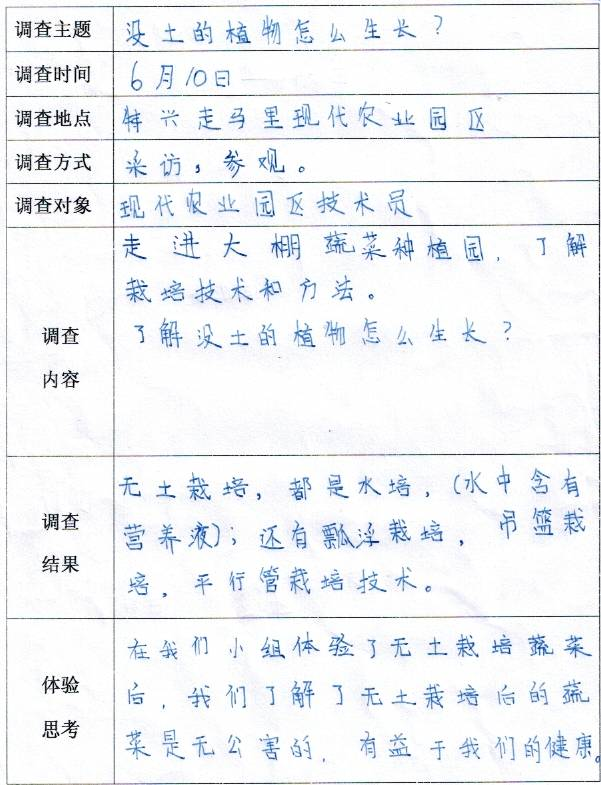 调查主题 没土的植物怎么生长？
调查时间 6月10日
调查地点 特兴走马里现代农业园区
调查方式 采访，参观。
调查对象 现代农业园区技术员
走进大棚蔬菜种植园，了解
栽培技术和方法。
了解没土的植物怎么生长？
调查
内容
无土栽培，都是水培，（水中含有
营养液）；还有瓢浮栽培，吊篮栽
培，平行管栽培技术。
调查
结果
在我们小组体验了无土栽培蔬菜
后，我们了解了无土栽培后的蔬
菜是无公害的，有益于我们的健康。
体验
思考